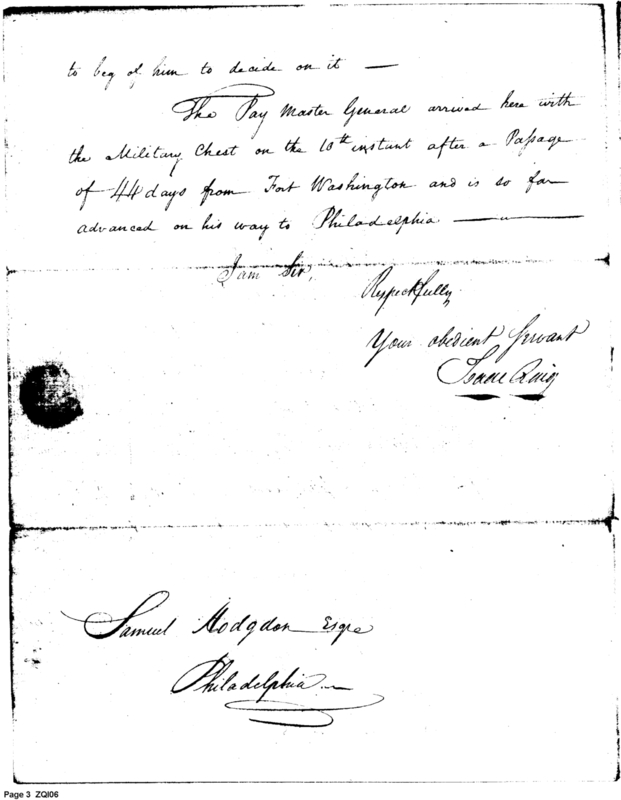 to beg of him to decide on it —
The Pay Master General arrived here with
the Military Chest on the 10th instant after a Passage
of 44 days from Fort Washington and is so far
advanced on his way to Philadelphia —
I am Sir,
Respectfully
Your obedient Servant
Isaac Craig
Samuel Hodgdon Esqre
Philadelphia
Page 3 ZQI06